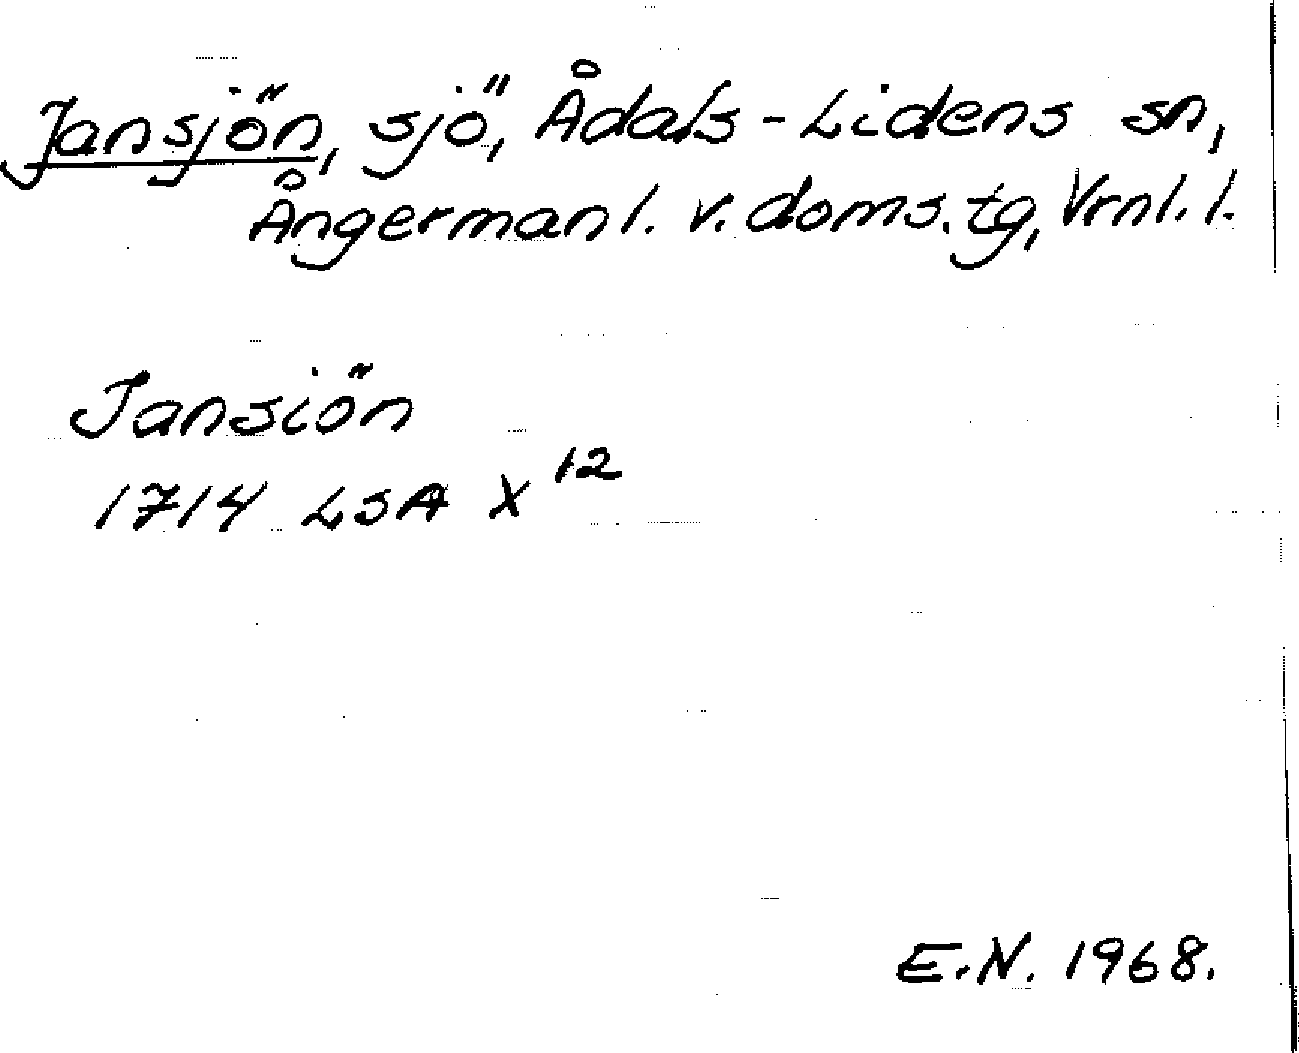 Jansjön, sjö, Ådals-Lidens sn,
Ångermanl. v. doms.tg, Vrnl. l.
Jansiön
1714 LSA X¹²
E.N. 1968.